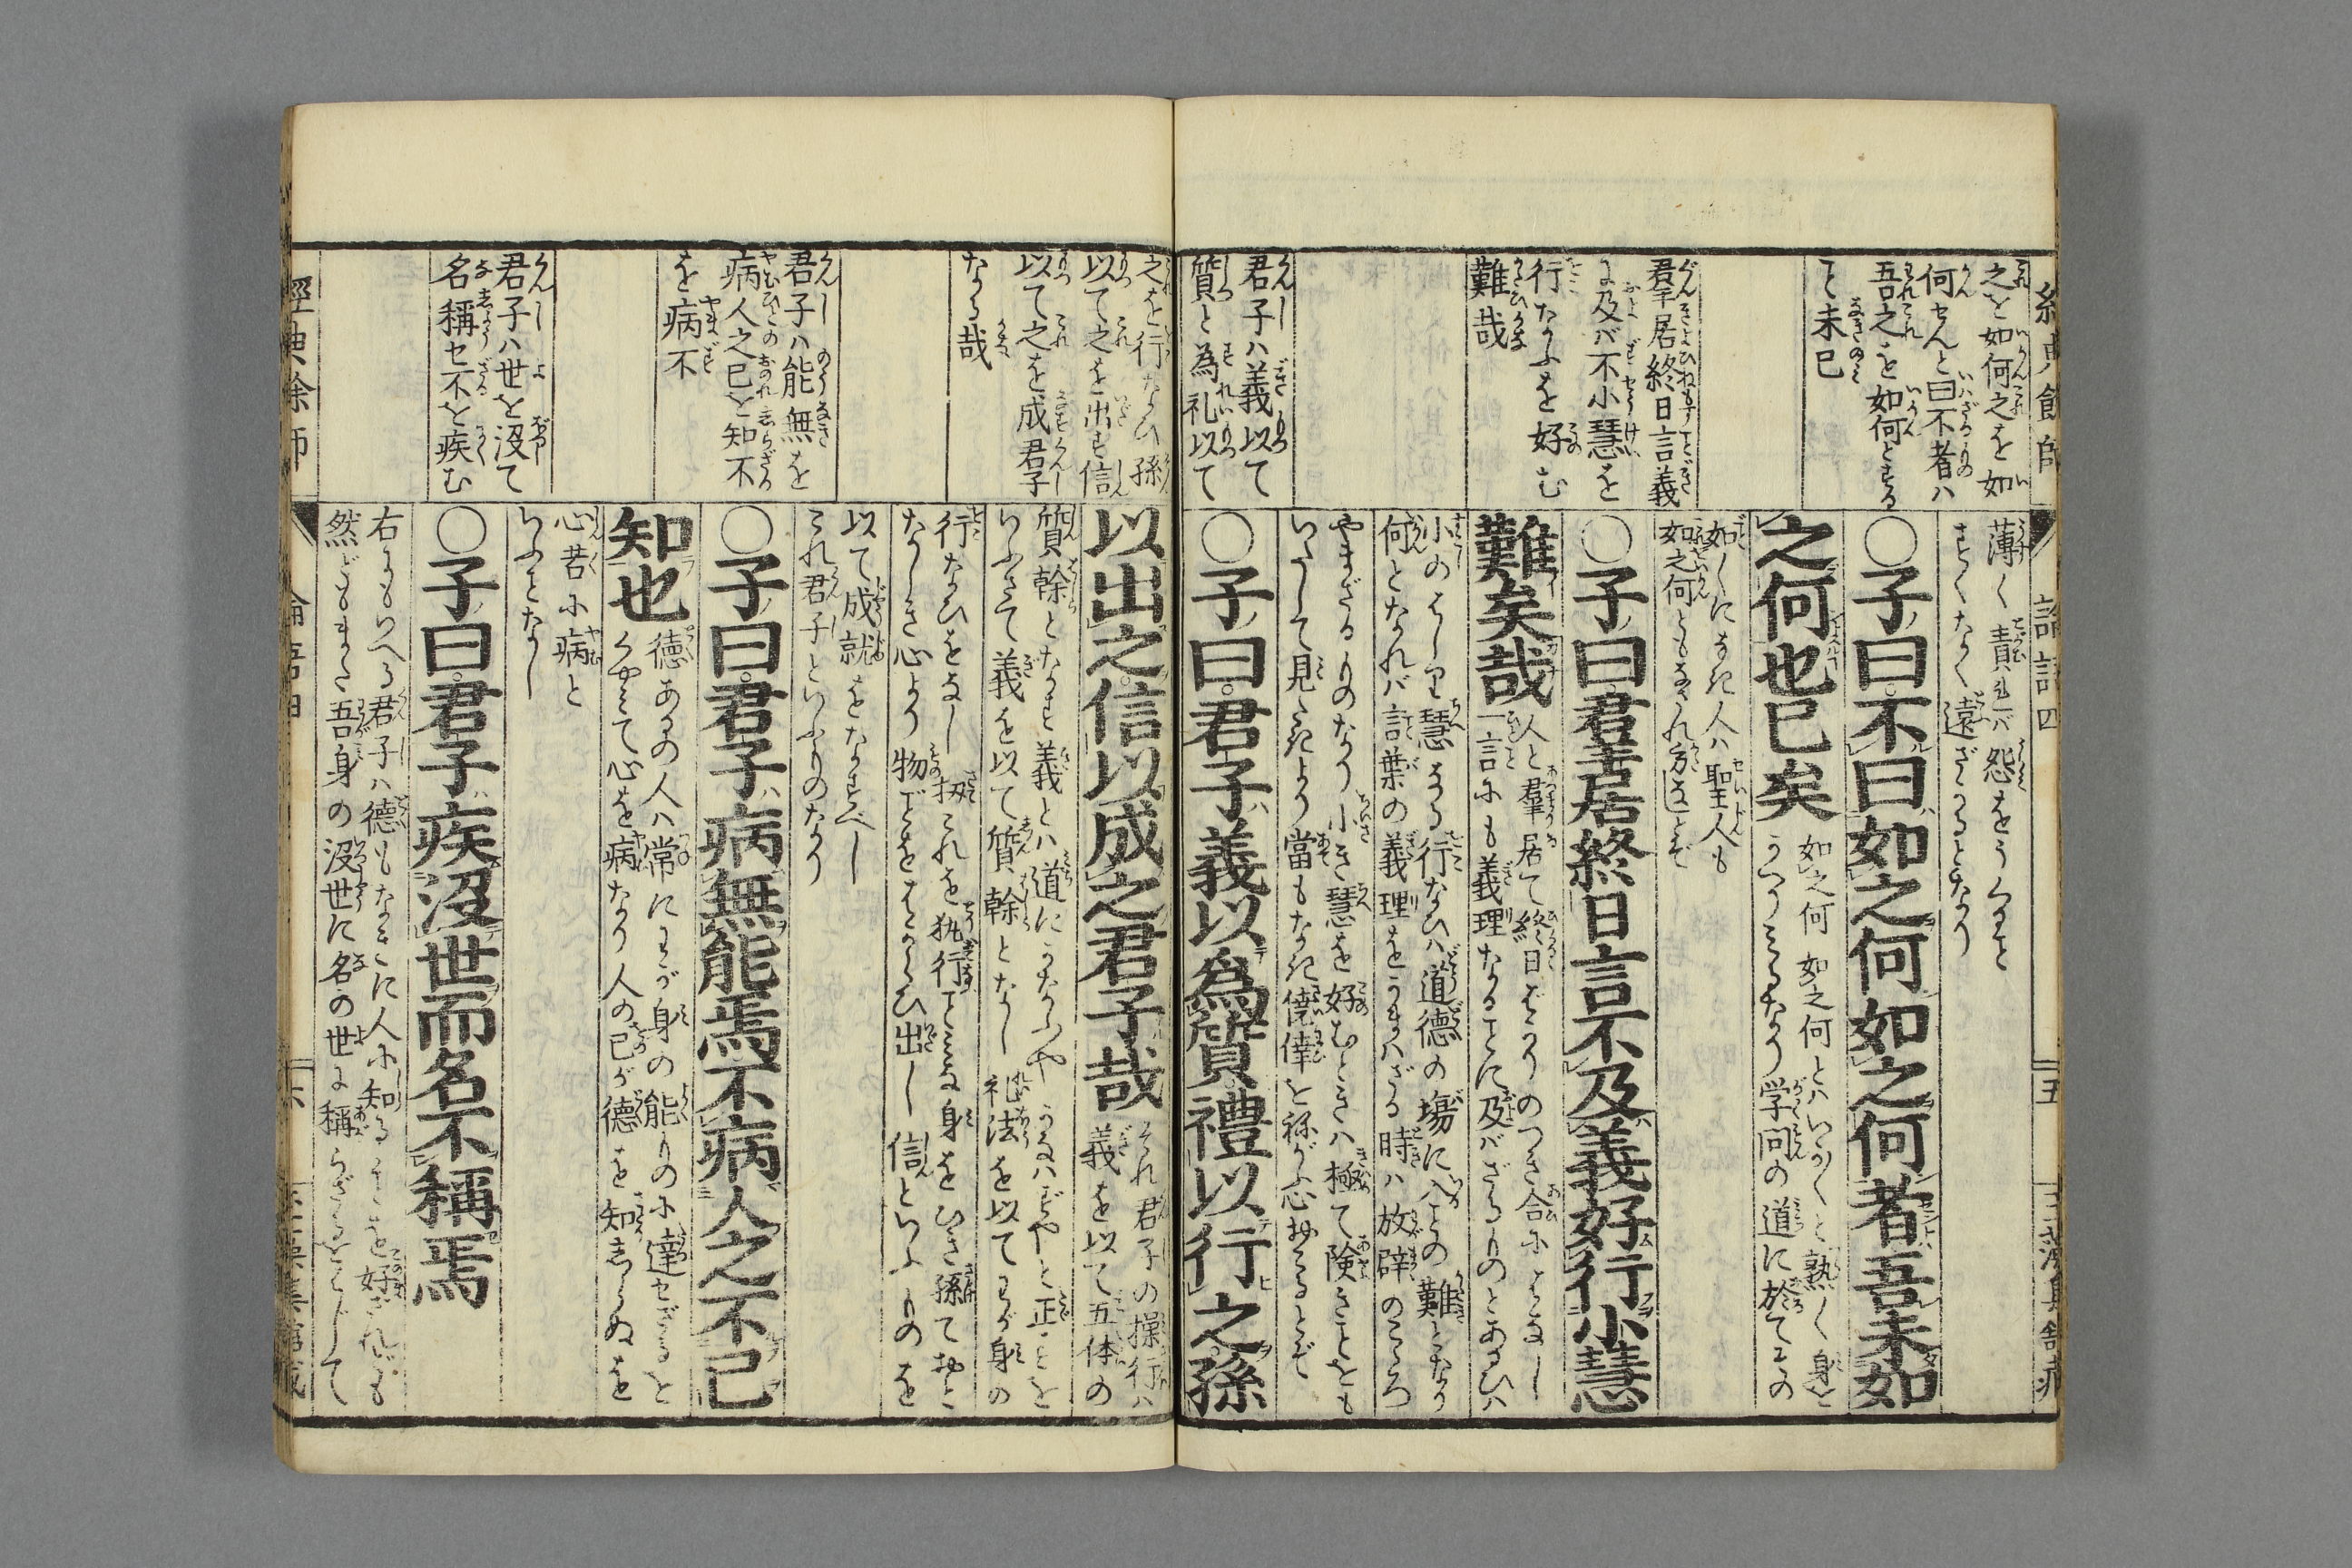 之を如何之を如
何せんと曰不者ハ
吾之を如何とする
こと未已
羣居終日言義
に及バ不小慧を
行なふを好む
難哉
君子ハ義以て
質と為礼以て
薄く責れバ怨をうくること
すくなく遠ざかるとなり
〇子曰不曰如之何如之何者吾未如
之何也已矣
如之何如之何とハいかんと熟く身を
かへりみるなり学問の道に於てその
如くにする人ハ聖人も
〇子曰羣居終日言不及義好行小慧
難矣哉
人と羣居て終日ばかりのつき合にはなし
一言にも義理なることに及バざるものとあるひハ
小のはしり慧なる行なひハ道徳の場に入ことの難となり
何となれバ言葉の義理をかまハざる時ハ放辟のこころ
やまざるものなり小き慧を好むときハ極て険きことをも
いたして見たきより當もなき僥倖を祢がふ心おこるとぞ
〇子曰君子義以為質禮以行之孫
經典餘師
論語四
五
之を行なひ孫
以て之を出す信
以て之を成君子
なる哉
君子ハ能無を
病人之已を知不
を病不
君子ハ世を没て
名稱せ不を疾む
以出之信以成之君子哉
それ君子の操行ハ
義を以て五体の
質幹となす義とハ道にかなふやかなハずやと正ことを
いふさて義を以て質幹となし礼法を以てわが身の
行なひをなし扨これを執行ことみな身をひき孫ておと
なしき心より物ごとをはからひ出し信といふものを
以て成就をなすべし
これ君子といふものなり
〇子曰君子病無能焉不病人之不已
知也
徳あるの人ハ常にわが身の能ものに達せざるを
くやみて心を病なり人の已が徳を知しらぬを
心苦に病と
いふことなし
〇子曰君子疾沒世而名不稱焉
右にもいへる君子ハ徳もなきに人に知ることを好ざれども
然どもまた吾身の没世に名の世に稱らざるをはぢとして
經典餘師
論語四
六